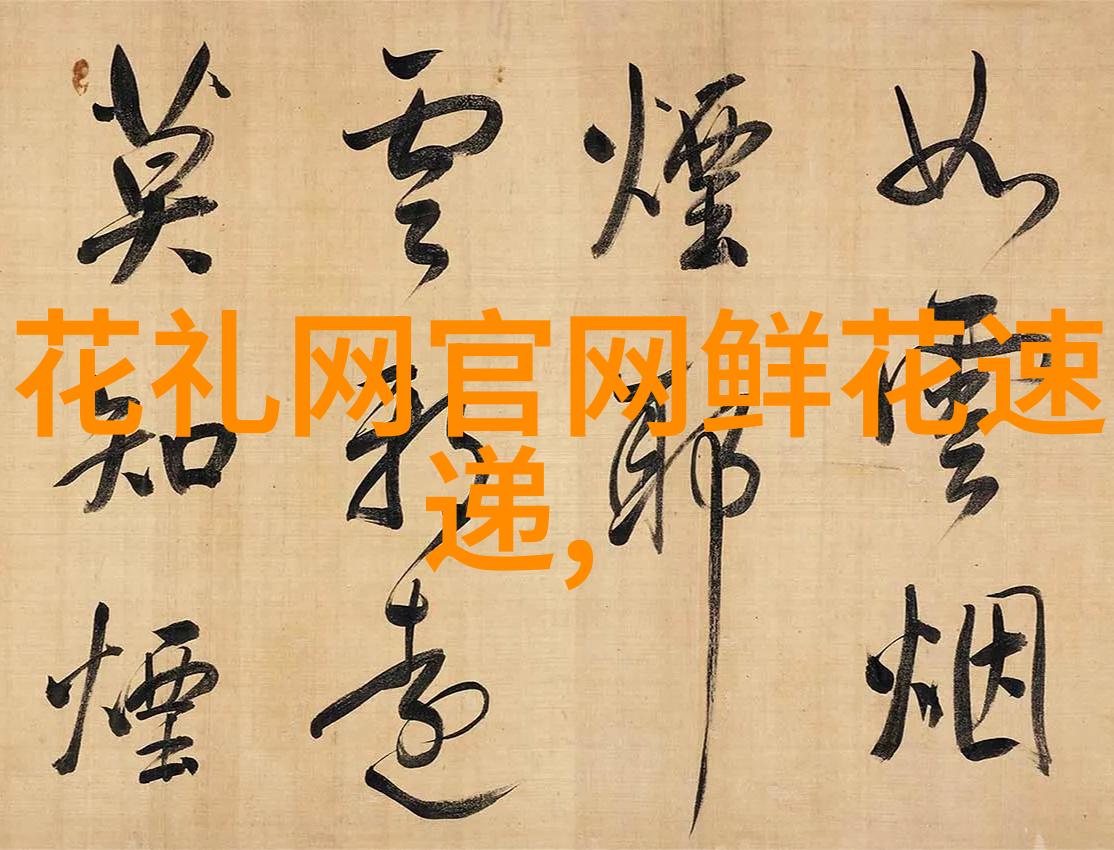 花礼网官网鲜花速
递,
如雲烟
煙耶
雲遠
莫知煙